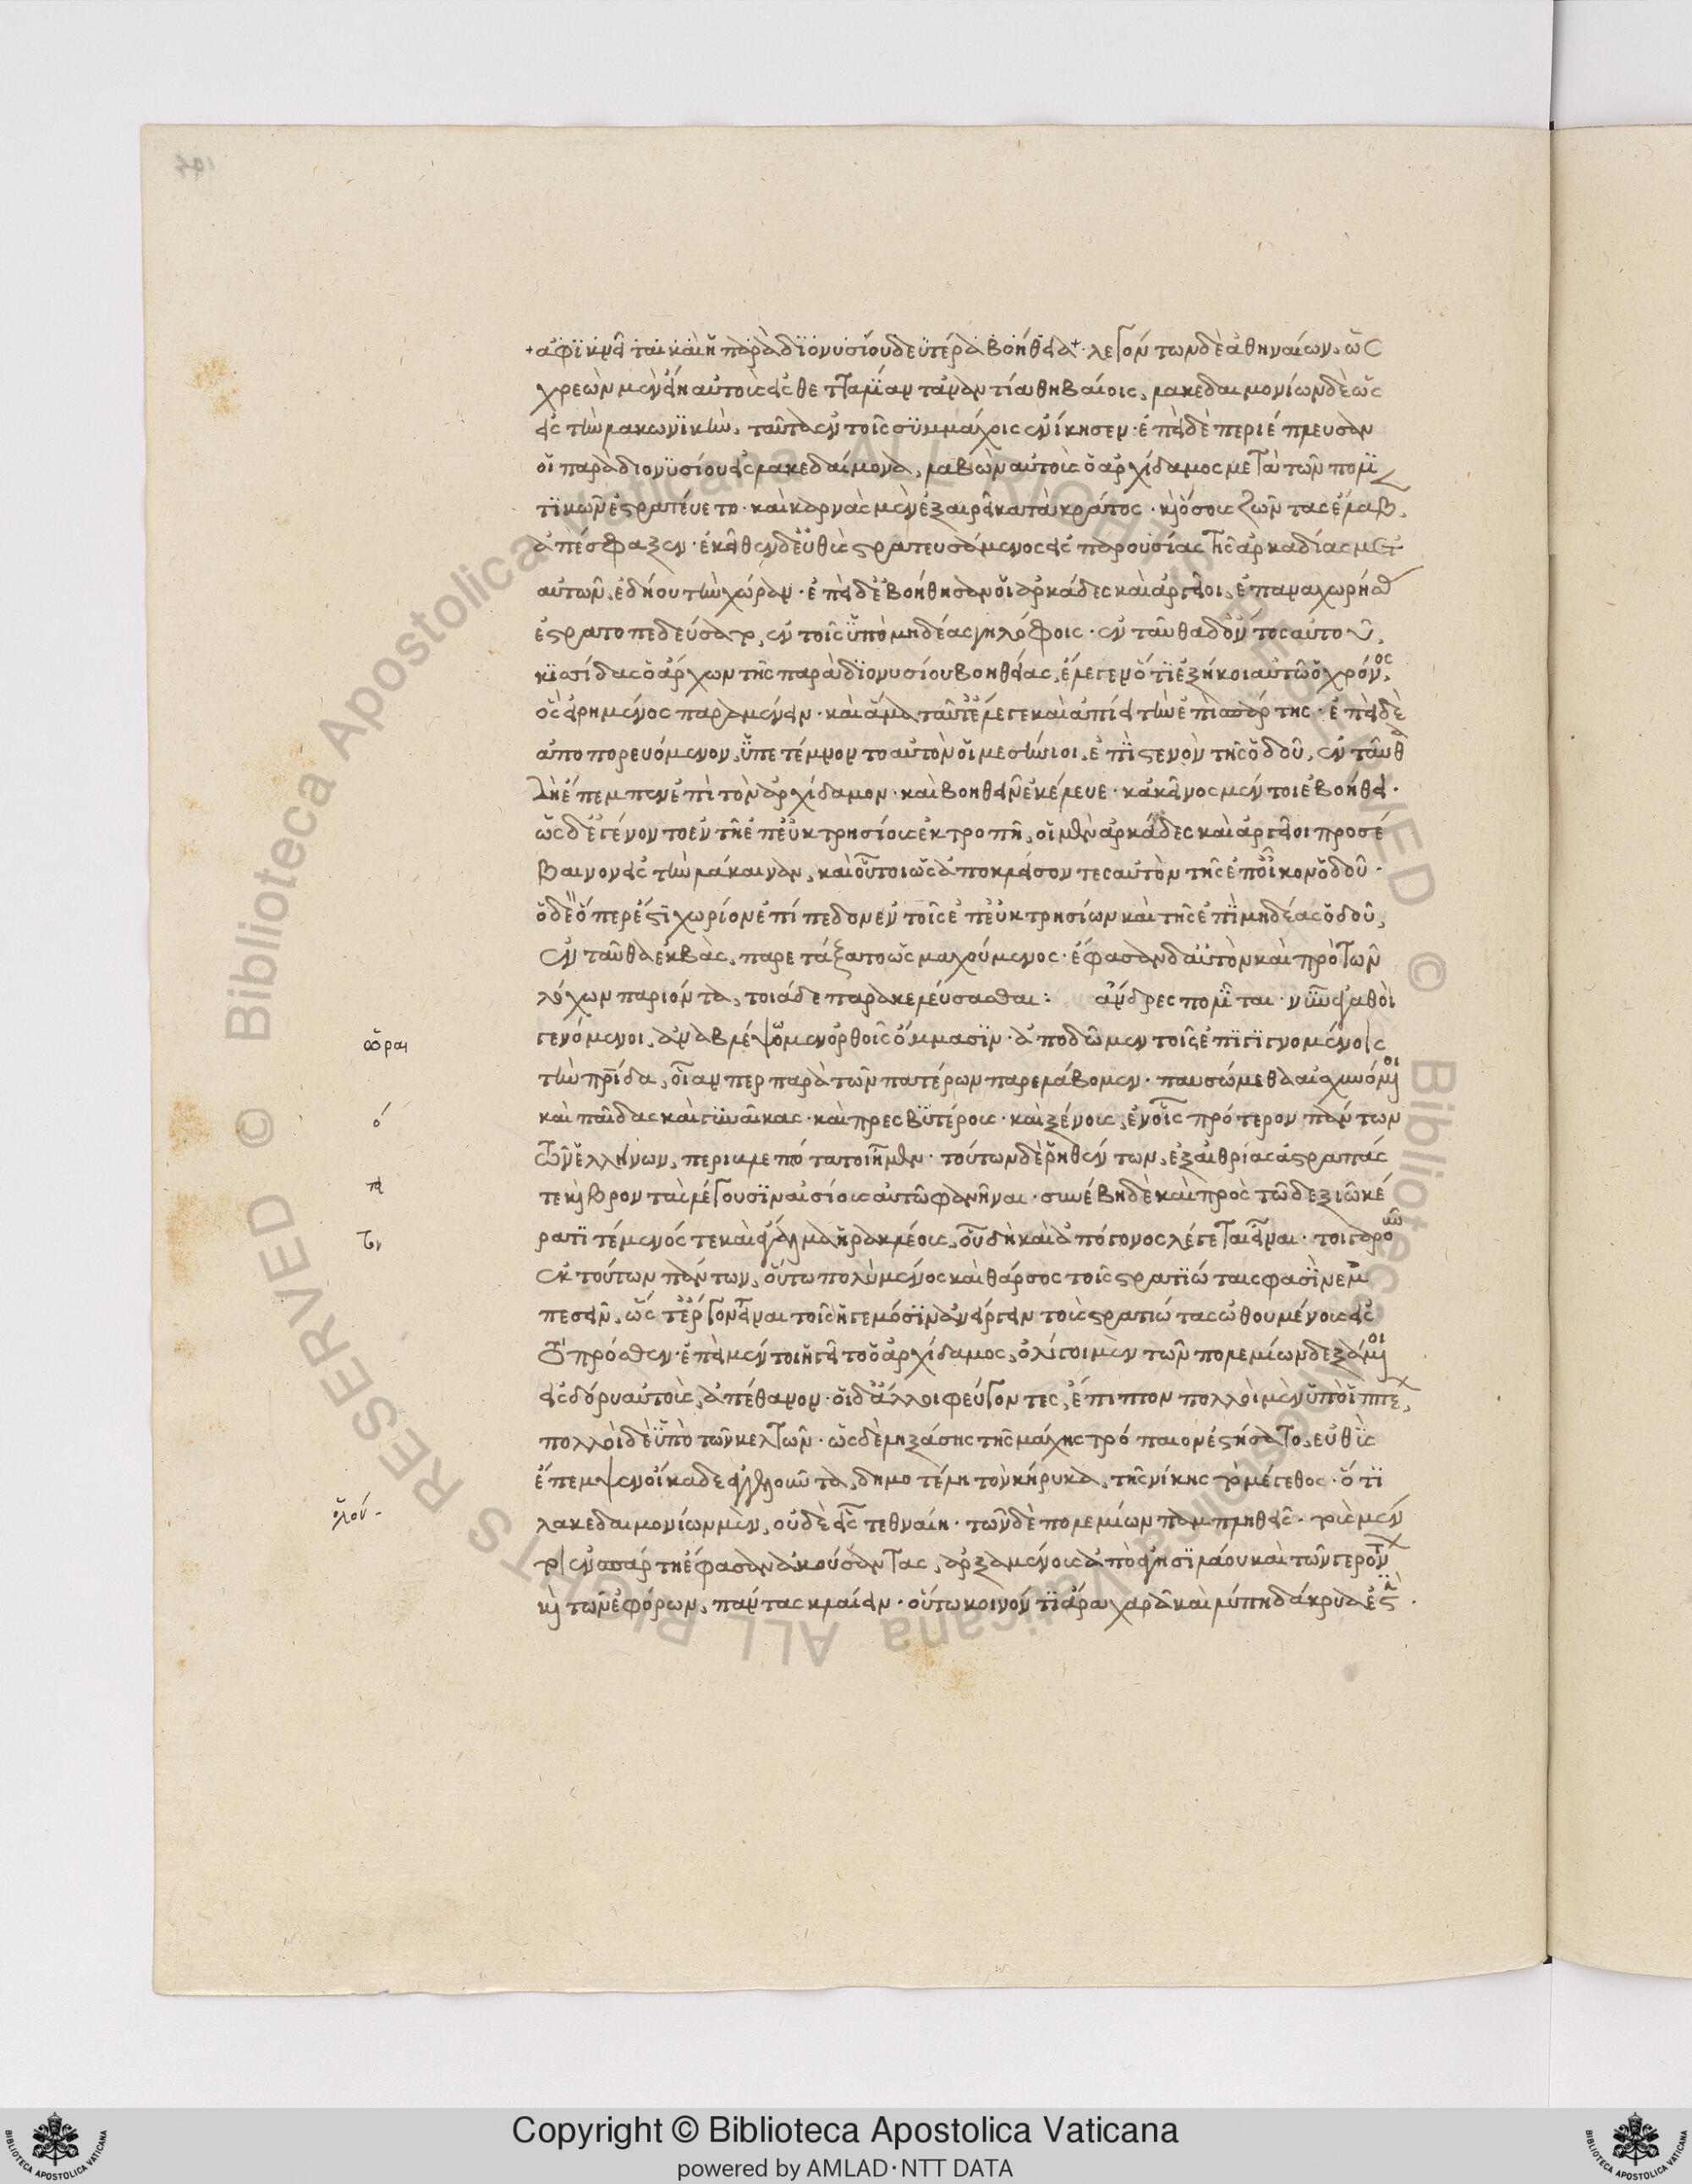 ἀφικνεῖται καὶ ἡ παρὰ διονυσίου δευτέρα βοήθεια· λεγόντων δὲ ἀθηναίων, ὡς
χρεὼν μὲν εἴη αὐτοὺς ἐς θετταλίαν τἀναντία θηβαίοις, λακεδαιμονίων δὲ ὡς
ἐς τὴν λακωνικὴν, ταῦτα ἐν τοῖς συμμάχοις ἐνίκησεν· ἐπεὶ δὲ περιέπλευσαν
οἱ παρὰ διονυσίου ἐς λακεδαίμονα, λαβὼν αὐτοὺς ὁ ἀρχίδαμος μετὰ τῶν πολι
τικῶν ἐστρατεύετο· καὶ καρυὰς μὲν ἐξαιρεῖ κατὰ κράτος· κ ὅσους ζῶντας ἔλαβ,
ἀπέσφαξεν· ἐκεῖθεν δ' εὐθὺς στρατευσάμενος ἐς παρουσίας τῆς ἀρκαδίας μετ
αὐτῶν, ἐδῄου τὴν χώραν· ἐπεὶ δ' ἐβοήθησαν οἱ ἀρκάδες καὶ ἀργεῖοι, ἐπαναχωρήσ
ἐστρατοπεδεύσατο, ἐν τοῖς ὑπὸ μηδέας γηλόφοις· ἐνταῦθα δ' ὄντος αὐτοῦ,
κισσίδας ὁ ἄρχων τῆς παρὰ διονυσίου βοηθείας, ἔλεγεν ὅτι ἐξήκοι αὐτῷ ὁ χρόνος,
ὃς εἰρημένος παραμένειν· καὶ ἅμα ταῦτ' ἔλεγε καὶ ἀπίει τὴν ἐπὶ σπάρτης· ἐπεὶ δὲ
ἀποπορευόμενον, ὑπετέμνοντο αὐτὸν οἱ μεσσήνιοι, ἐπὶ στενὸν τῆς ὁδοῦ, ἐνταῦθα
δὴ ἔπεμπεν ἐπὶ τὸν ἀρχίδαμον· καὶ βοηθεῖν ἐκέλευε· κἀκεῖνος μέντοι ἐβοήθει·
ὡς δ' ἐγένοντο ἐν τῇ ἐπ' εὐκτρησίους ἐκτροπῇ, οἱ μὲν ἀρκάδες καὶ ἀργεῖοι προσέ
βαινον ἐς τὴν λάκαιναν, καὶ οὗτοι ὡς ἀποκλείσοντες αὐτὸν τῆς ἐπ' οἶκον ὁδοῦ·
ὁ δ' ὅπερ ἐστὶ χωρίον ἐπίπεδον ἐν τοῖς ἐπ' εὐκτρησίων καὶ τῆς ἐπὶ μηδέας ὁδοῦ,
ἐνταῦθα ἐκβὰς, παρετάξατο ὡς μαχούμενος· ἔφασαν δ' αὐτὸν καὶ πρὸ τῶν
λόχων παριόντα, τοιάδε παρακελεύσασθαι: ἄνδρες πολῖται· νῦν ἀγαθοὶ
γενόμενοι, ἀναβλέψομεν ὀρθοῖς ὄμμασιν· ἀποδῶμεν τοῖς ἐπιγιγνομένοις
ὅραι
τὴν πρίδα, οἵαν περ παρὰ τῶν πατέρων παρελάβομεν· παυσώμεθα αἰσχυνόμοι
καὶ παῖδας καὶ γυναῖκας· καὶ πρεσβυτέρους· καὶ ξένους, ἐν οἷς πρότερον πάντων
ό
τῶν ἑλλήνων, περιβλεπτότατοι ἦμεν· τούτων δὲ ῥηθέντων, ἐξ αἰθρίας ἀστραπάς
τε κ βροντὰς λέγουσιν αἰσίους αὐτῷ φανῆναι· συνέβη δὲ καὶ πρὸς τῷ δεξιῷ κέ
πα
ρατι τέμενός τε καὶ ἄγαλμα ἡρακλέους, οὗ δὴ καὶ ἀπόγονος λέγεται εἶναι· τοιγαροῦν
τον
ἐκ τούτων πάντων, οὕτω πολὺ μένος καὶ θάρσος τοῖς στρατιώταις φασὶν ἐμ
πεσεῖν, ὥς τ' ἔργον εἶναι τοῖς ἡγεμόσιν ἀνείργειν τοὺς στρατιώτας ὠθουμένους ἐς
τὸ πρόσθεν· ἐπεὶ μέντοι ἡγεῖτο ὁ ἀρχίδαμος, ὀλίγοι μὲν τῶν πολεμίων δεξάμοι
ἐς δόρυ αὐτοὺς, ἀπέθανον· οἱ δ' ἄλλοι φεύγοντες, ἔπιπτον πολλοὶ μὲν ὑπὸ ἱππε,
πολλοὶ δὲ ὑπὸ τῶν κελτῶν· ὡς δὲ ληξάσης τῆς μάχης τρόπαιον ἐστήσατο, εὐθὺς
ἔπεμψεν οἴκαδε ἀγγελοῦντα, δημοτέλη τὸν κήρυκα, τῆς νίκης τὸ μέγεθος· ὅτι
λακεδαιμονίων μὲν, οὐδὲ εἷς τεθναίη· τῶν δὲ πολεμίων παμπληθεῖς· τοὺς μέν
ὅλον
τοι ἐν σπάρτῃ ἔφασαν ἀκούσαντας, ἀρξαμένους ἀπὸ ἀγησιλάου καὶ τῶν γερόντ
κ τῶν ἐφόρων, πάντας κλαίειν· οὕτω κοινόν τι ἄρα χαρᾷ καὶ λύπῃ δάκρυά ἐστ.
Copyright © Biblioteca Apostolica Vaticana
powered by AMLAD·NTT DATA